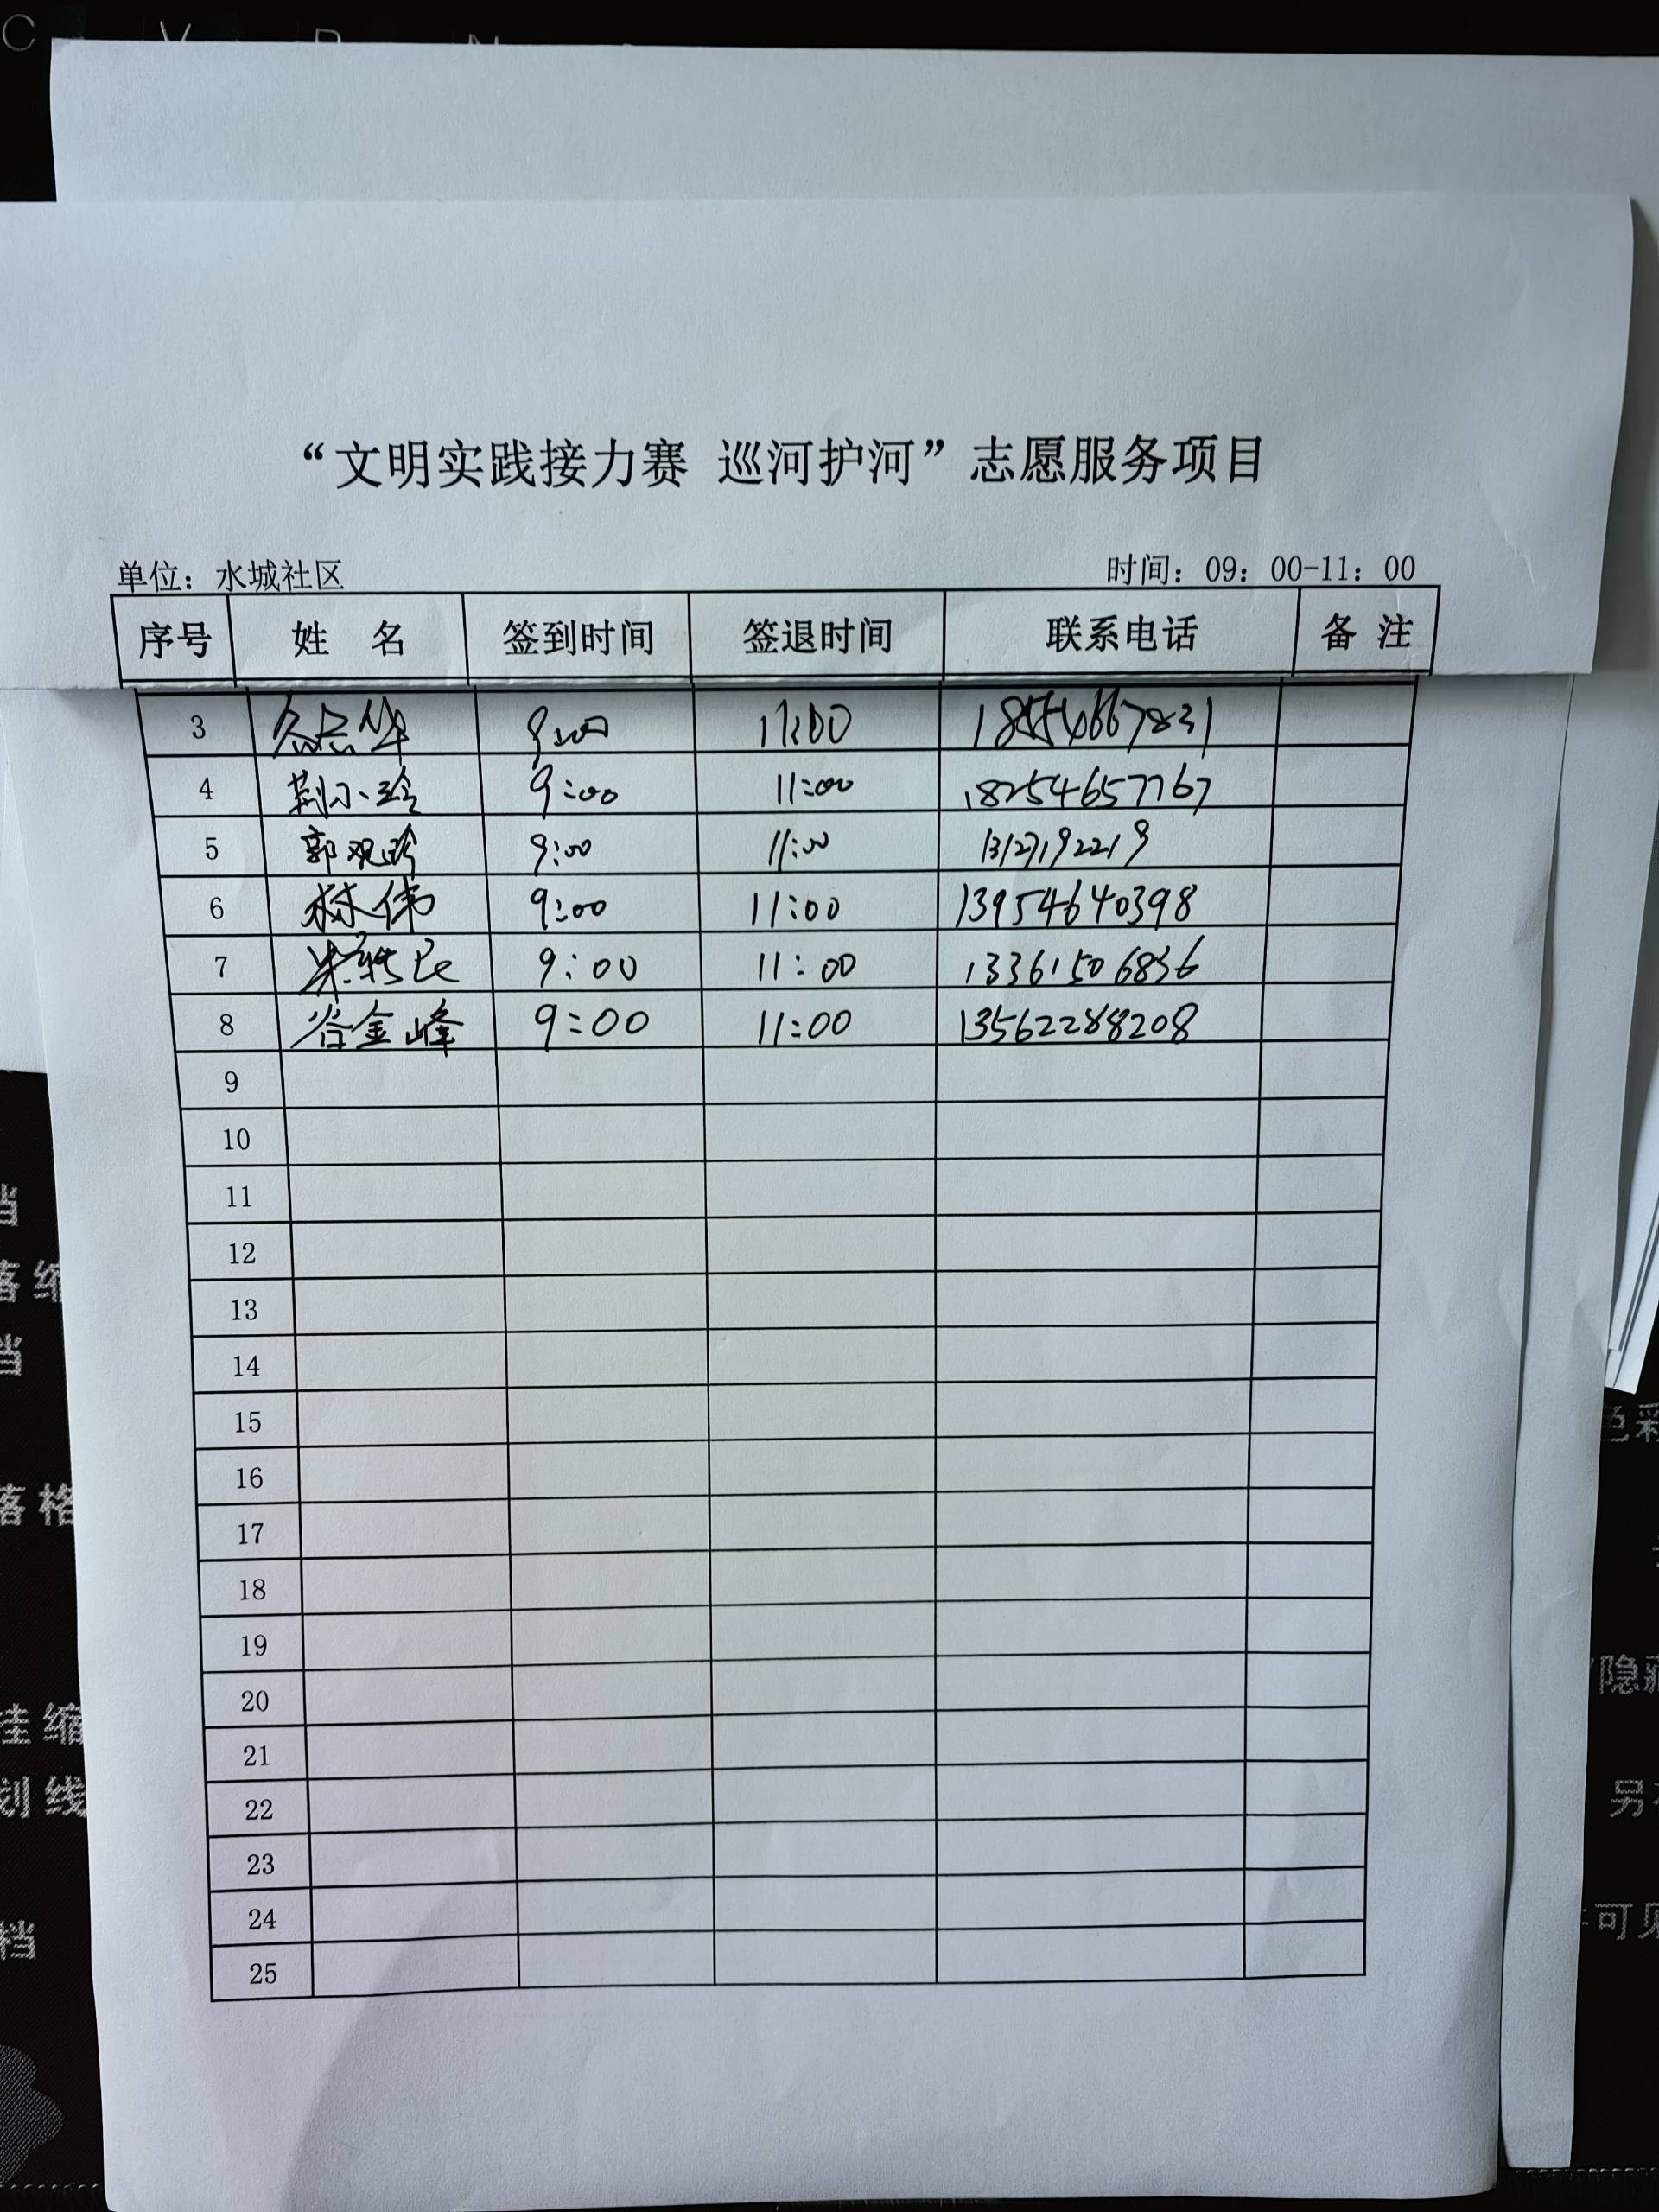 “文明实践接力赛 巡河护河”志愿服务项目
单位：水城社区 时间：09：00-11：00
序号 姓 名 签到时间 签退时间 联系电话 备 注
3 9:00 11:00 18554667831
4 荆小玲 9:00 11:00 18254657767
5 郭观玲 9:00 11:00 13127192219
6 林伟 9:00 11:00 13954640398
7 9:00 11:00 13361506836
8 谷金峰 9:00 11:00 13562288208
9
10
11
12
13
14
15
16
17
18
19
20
21
22
23
24
25
档
落缩
档
落格
挂缩
划线
档
色彩
隐藏
另
可见